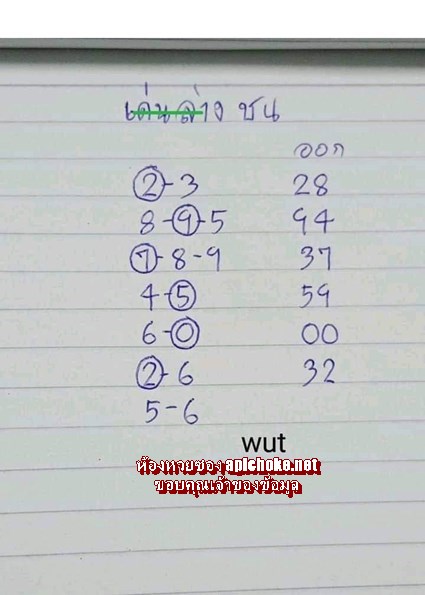 เด่นล่าง ชน
ออก
2-3 28
8-9-5 94
7-8-9 37
4-5 59
6-0 00
2-6 32
5-6
wut
ห้องหวยซอง apichoke.net
ขอบคุณเจ้าของข้อมูล